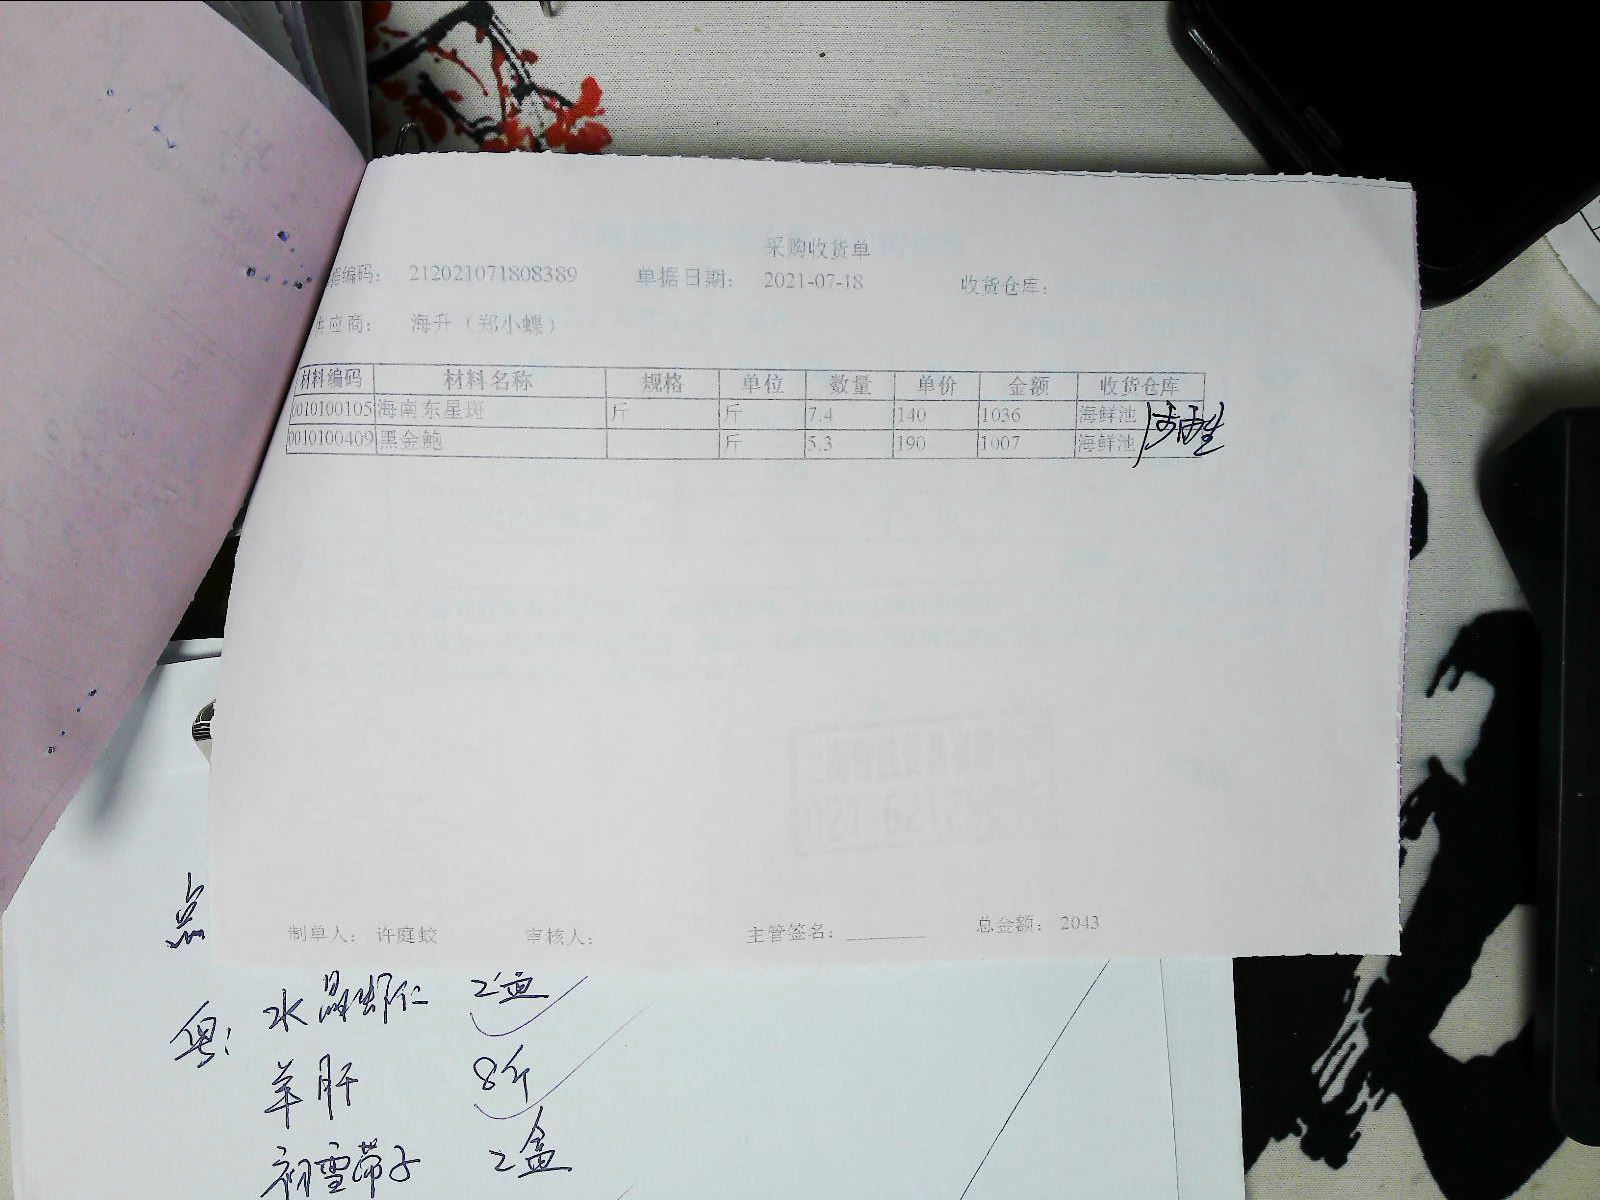 采购收货单
据编码： 212021071808389 单据日期： 2021-07-18 收货仓库：
供应商： 海升（郑小蝶）
材料编码 材料名称 规格 单位 数量 单价 金额 收货仓库
0010100105 海南东星斑 斤 斤 7.4 140 1036 海鲜池
0010100409 黑金鲍 斤 5.3 190 1007 海鲜池
制单人： 许庭蛟 审核人： 主管签名： 总金额： 2043
点
粤： 水晶虾仁 2盒
羊肝 8斤
初雪带子 2盒